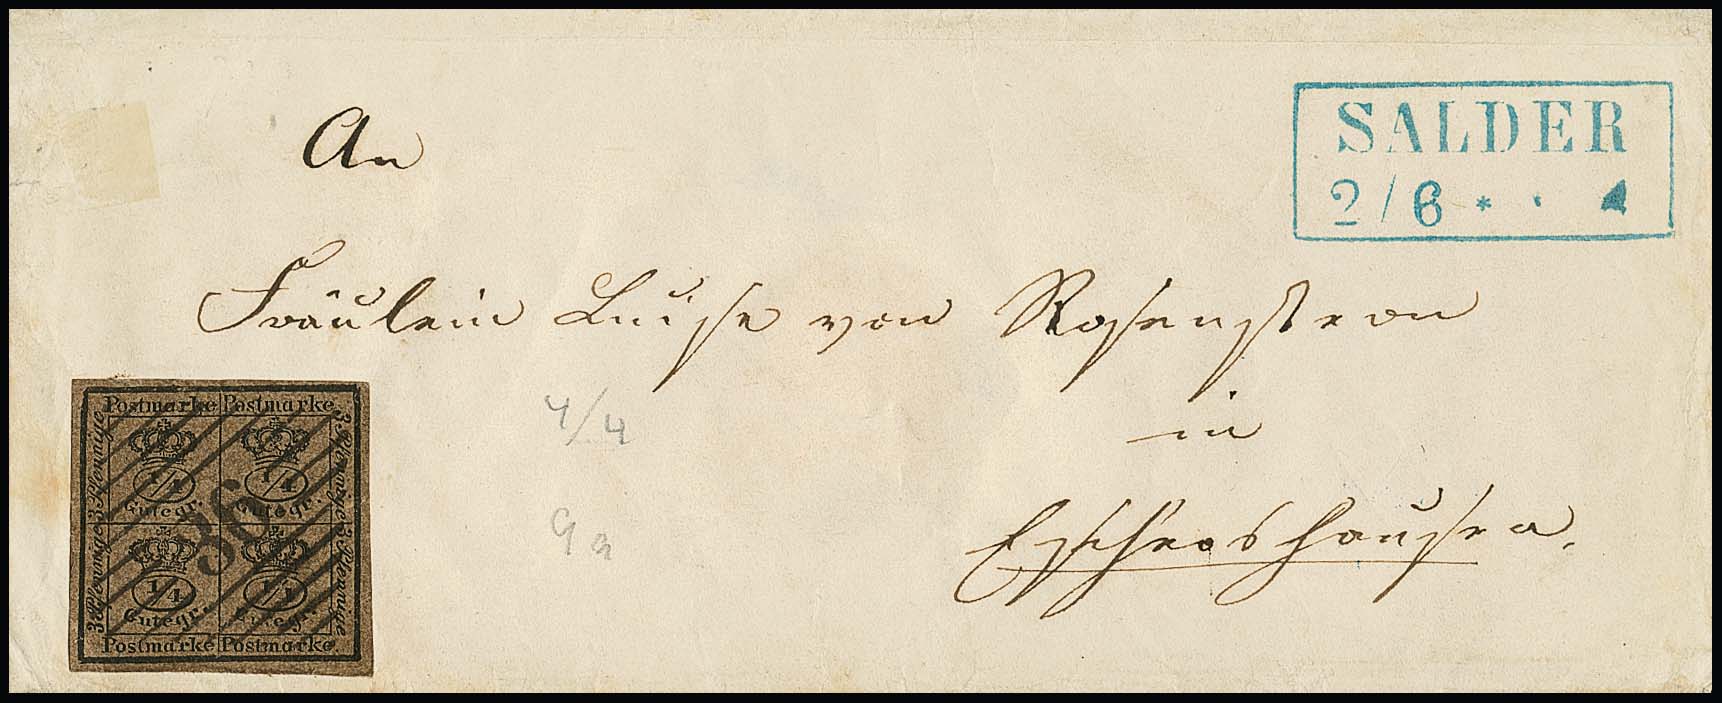 An
SALDER
2/6 * · 4
Fräulein Luise von Rosenstern
in
Eschershausen.
4/4
9a
Postmarke Postmarke
3 Pfennige 3 Pfennige
3 Pfennige 3 Pfennige
1/4 1/4
Gutegr. Gutegr.
36
1/4 1/4
Gutegr. Gutegr.
Postmarke Postmarke